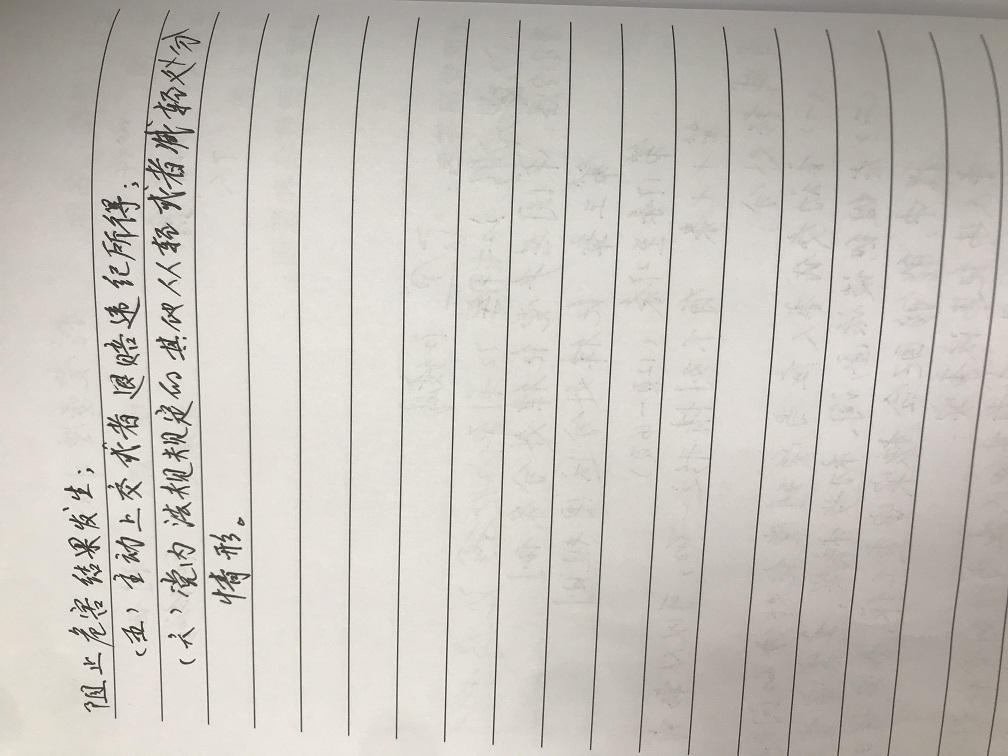 阻止危害结果发生；
（五）主动上交或者退赔违纪所得；
（六）党内法规规定的其他从轻或者减轻处分
情形。